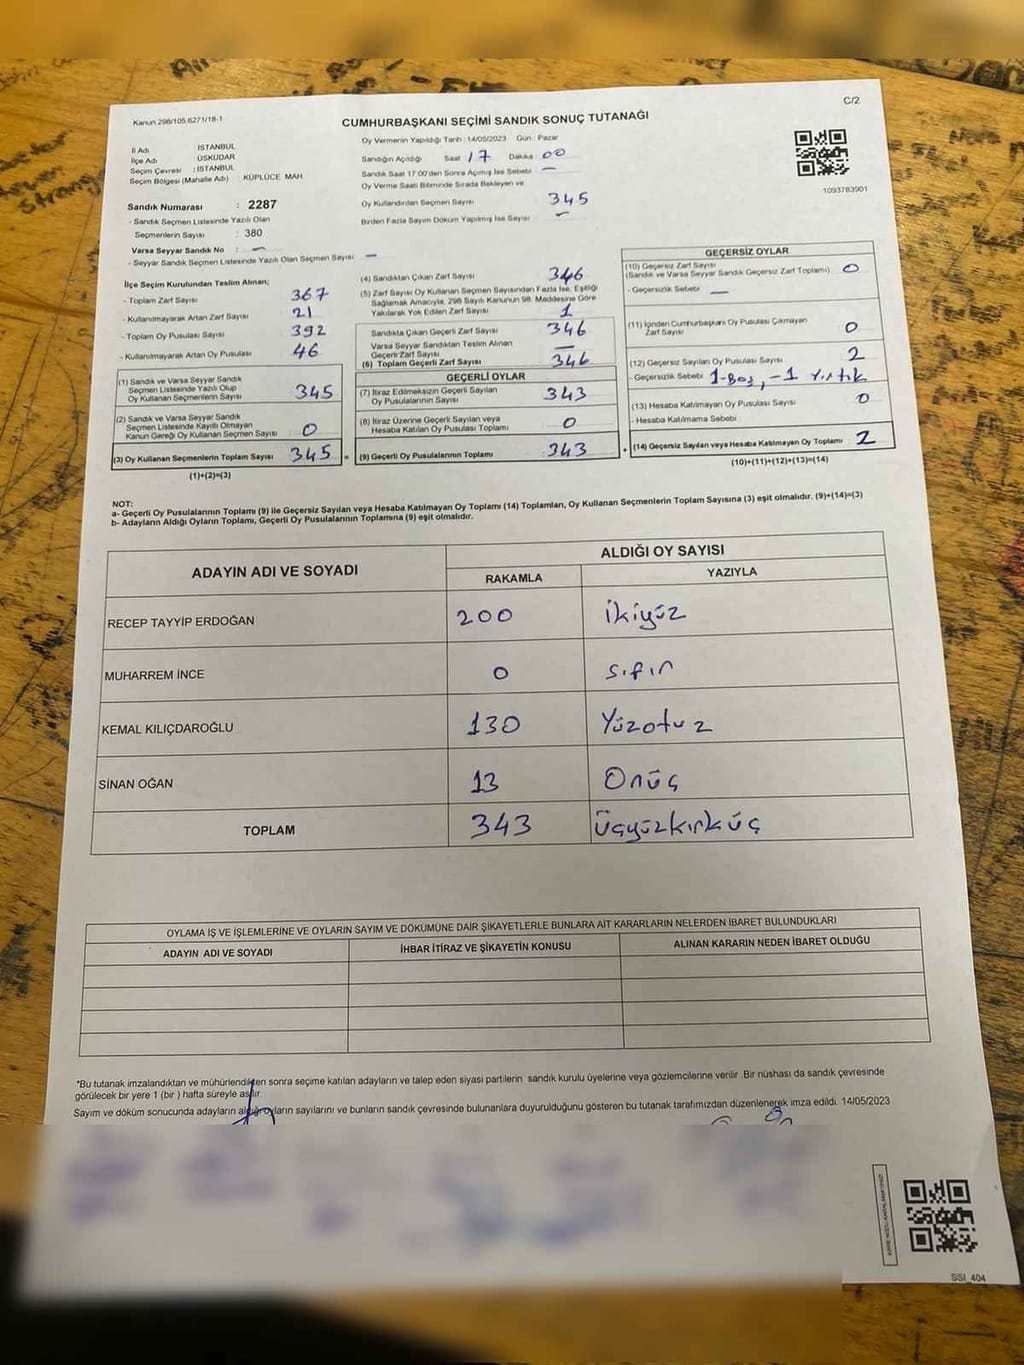 C/2
Kanun 298/105.6271/18-1
CUMHURBAŞKANI SEÇİMİ SANDIK SONUÇ TUTANAĞI
İl Adı : İSTANBUL
İlçe Adı : ÜSKÜDAR
Seçim Çevresi : İSTANBUL
Seçim Bölgesi (Mahalle Adı) : KÜPLÜCE MAH.
Sandık Numarası : 2287
- Sandık Seçmen Listesinde Yazılı Olan
Seçmenlerin Sayısı : 380
Varsa Seyyar Sandık No : -
- Seyyar Sandık Seçmen Listesinde Yazılı Olan Seçmen Sayısı : -
Oy Vermenin Yapıldığı Tarih : 14/05/2023 Gün : Pazar
Sandığın Açıldığı Saat 17 Dakika 00
Sandık Saat 17:00'den Sonra Açılmış İse Sebebi : -
Oy Verme Saati Bitiminde Sırada Bekleyen ve
Oy Kullandırılan Seçmen Sayısı : 345
Birden Fazla Sayım Döküm Yapılmış İse Sayısı : -
1093783901
İlçe Seçim Kurulundan Teslim Alınan;
- Toplam Zarf Sayısı : 367
- Kullanılmayarak Artan Zarf Sayısı : 21
- Toplam Oy Pusulası Sayısı : 392
- Kullanılmayarak Artan Oy Pusulası : 46
(1) Sandık ve Varsa Seyyar Sandık
Seçmen Listesinde Yazılı Olup
Oy Kullanan Seçmenlerin Sayısı : 345
(2) Sandık ve Varsa Seyyar Sandık
Seçmen Listesinde Kayıtlı Olmayan
Kanun Gereği Oy Kullanan Seçmen Sayısı : 0
(3) Oy Kullanan Seçmenlerin Toplam Sayısı : 345
(1)+(2)=(3)
(4) Sandıktan Çıkan Zarf Sayısı : 346
(5) Zarf Sayısı Oy Kullanan Seçmen Sayısından Fazla İse, Eşitliği
Sağlamak Amacıyla, 298 Sayılı Kanunun 98. Maddesine Göre
Yakılarak Yok Edilen Zarf Sayısı : 1
Sandıkta Çıkan Geçerli Zarf Sayısı : 346
Varsa Seyyar Sandıktan Teslim Alınan
Geçerli Zarf Sayısı : -
(6) Toplam Geçerli Zarf Sayısı : 346
GEÇERLİ OYLAR
(7) İtiraz Edilmeksizin Geçerli Sayılan
Oy Pusulalarının Sayısı : 343
(8) İtiraz Üzerine Geçerli Sayılan veya
Hesaba Katılan Oy Pusulası Toplamı : 0
= (9) Geçerli Oy Pusulalarının Toplamı : 343
GEÇERSİZ OYLAR
(10) Geçersiz Zarf Sayısı
(Sandık ve Varsa Seyyar Sandık Geçersiz Zarf Toplamı) : 0
- Geçersizlik Sebebi : -
(11) İçinden Cumhurbaşkanı Oy Pusulası Çıkmayan
Zarf Sayısı : 0
(12) Geçersiz Sayılan Oy Pusulası Sayısı : 2
- Geçersizlik Sebebi : 1-Boş, -1 Yırtık
(13) Hesaba Katılmayan Oy Pusulası Sayısı : 0
- Hesaba Katılmama Sebebi :
+ (14) Geçersiz Sayılan veya Hesaba Katılmayan Oy Toplamı : 2
(10)+(11)+(12)+(13)=(14)
NOT:
a- Geçerli Oy Pusulalarının Toplamı (9) ile Geçersiz Sayılan veya Hesaba Katılmayan Oy Toplamı (14) Toplamları, Oy Kullanan Seçmenlerin Toplam Sayısına (3) eşit olmalıdır. (9)+(14)=(3)
b- Adayların Aldığı Oyların Toplamı, Geçerli Oy Pusulalarının Toplamına (9) eşit olmalıdır.
ADAYIN ADI VE SOYADI ALDIĞI OY SAYISI
RAKAMLA YAZIYLA
RECEP TAYYİP ERDOĞAN 200 ikiyüz
MUHARREM İNCE 0 sıfır
KEMAL KILIÇDAROĞLU 130 Yüzotuz
SİNAN OĞAN 13 Onüç
TOPLAM 343 Üçyüzkırküç
OYLAMA İŞ VE İŞLEMLERİNE VE OYLARIN SAYIM VE DÖKÜMÜNE DAİR ŞİKAYETLERLE BUNLARA AİT KARARLARIN NELERDEN İBARET BULUNDUKLARI
ADAYIN ADI VE SOYADI İHBAR İTİRAZ VE ŞİKAYETİN KONUSU ALINAN KARARIN NEDEN İBARET OLDUĞU
*Bu tutanak imzalandıktan ve mühürlendikten sonra seçime katılan adayların ve talep eden siyasi partilerin sandık kurulu üyelerine veya gözlemcilerine verilir. Bir nüshası da sandık çevresinde
görülecek bir yere 1 (bir) hafta süreyle asılır.
Sayım ve döküm sonucunda adayların aldığı oyların sayılarını ve bunların sandık çevresinde bulunanlara duyurulduğunu gösteren bu tutanak tarafımızdan düzenlenerek imza edildi. 14/05/2023
SSI_404